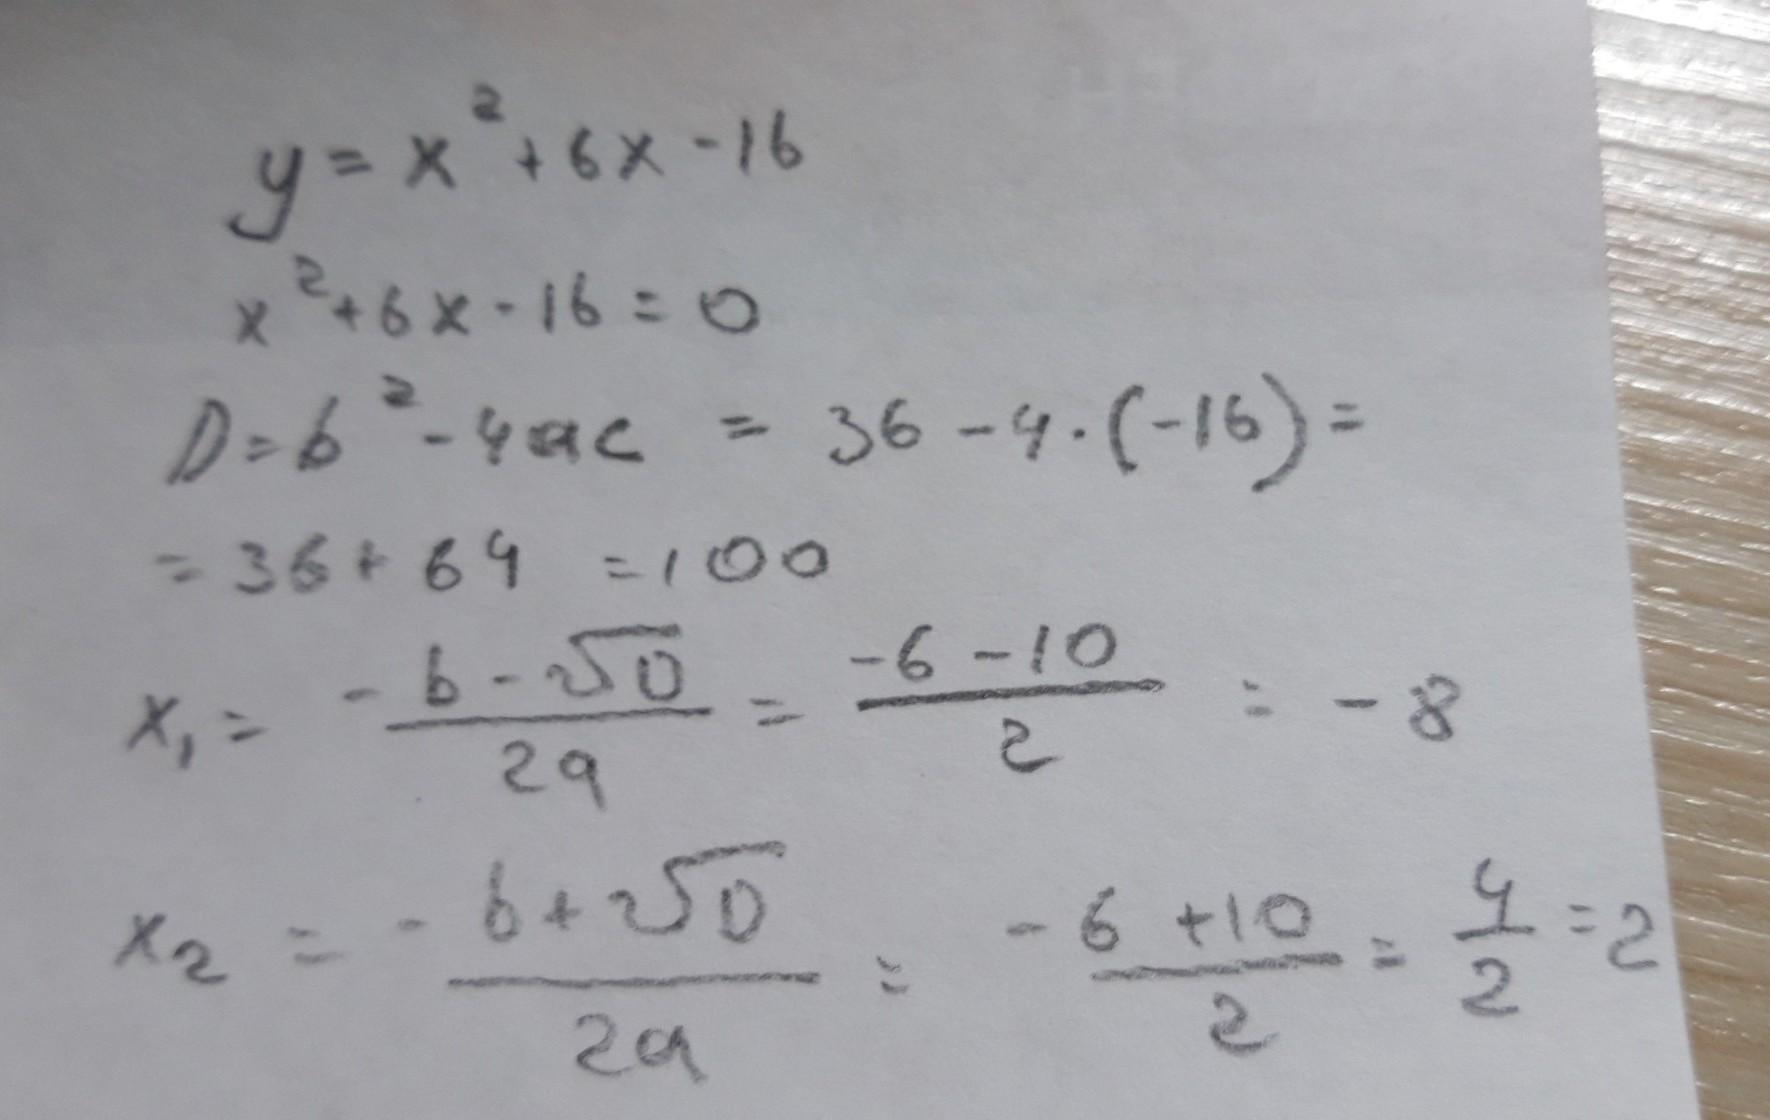 y = x² + 6x - 16
x² + 6x - 16 = 0
D = b² - 4ac = 36 - 4 · (-16) =
= 36 + 64 = 100
x₁ = (-b - √D)/(2a) = (-6 - 10)/2 = -8
x₂ = (-b + √D)/(2a) = (-6 + 10)/2 = 4/2 = 2